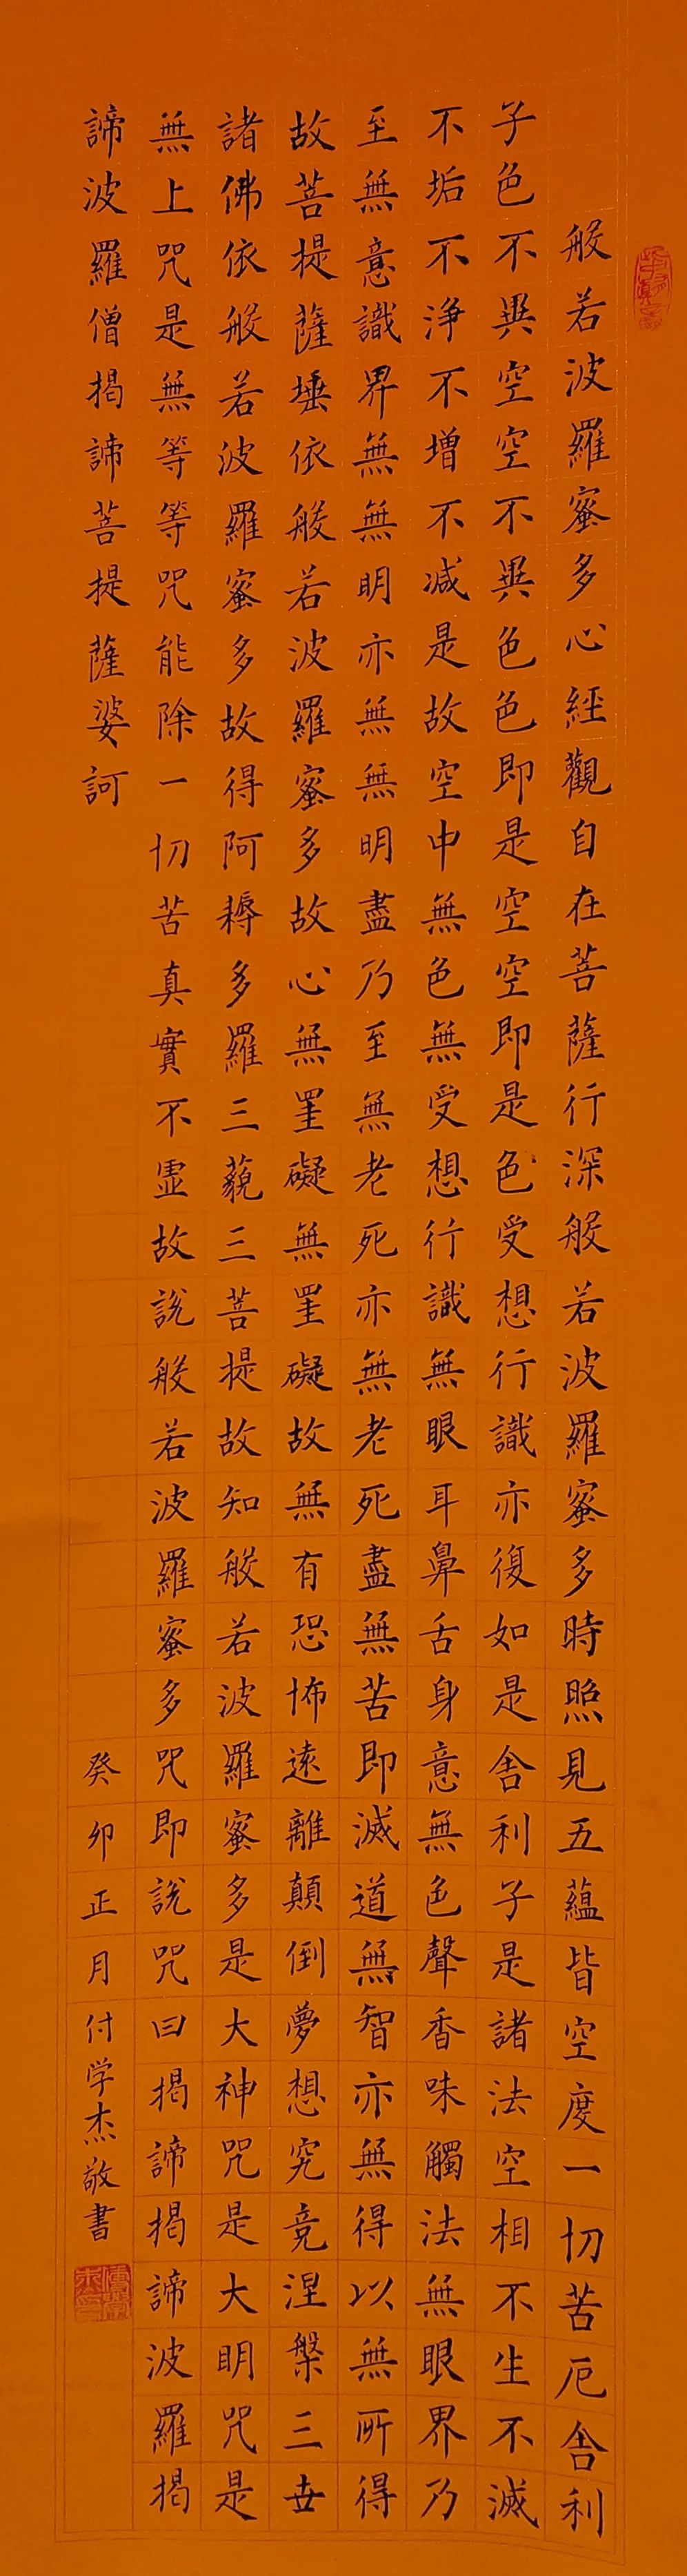 般若波羅蜜多心經觀自在菩薩行深般若波羅蜜多時照見五蘊皆空度一切苦厄舍利
子色不異空空不異色色即是空空即是色受想行識亦復如是舍利子是諸法空相不生不滅
不垢不浄不增不减是故空中無色無受想行識無眼耳鼻舌身意無色聲香味觸法無眼界乃
至無意識界無無明亦無無明盡乃至無老死亦無老死盡無苦即滅道無智亦無得以無所得
故菩提薩埵依般若波羅蜜多故心無罣礙無罣礙故無有恐怖遠離顛倒夢想究竟涅槃三世
諸佛依般若波羅蜜多故得阿耨多羅三藐三菩提故知般若波羅蜜多是大神咒是大明咒是
無上咒是無等等咒能除一切苦真實不虛故說般若波羅蜜多咒即說咒曰揭諦揭諦波羅揭
諦波羅僧揭諦菩提薩婆訶 癸卯正月付学杰敬書